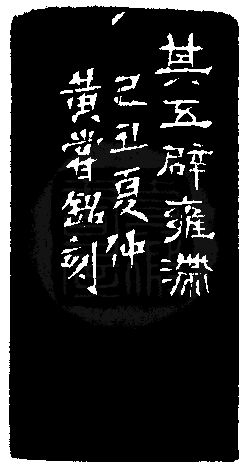 其五辟雍滞
己丑夏仲
黃嘗銘刻